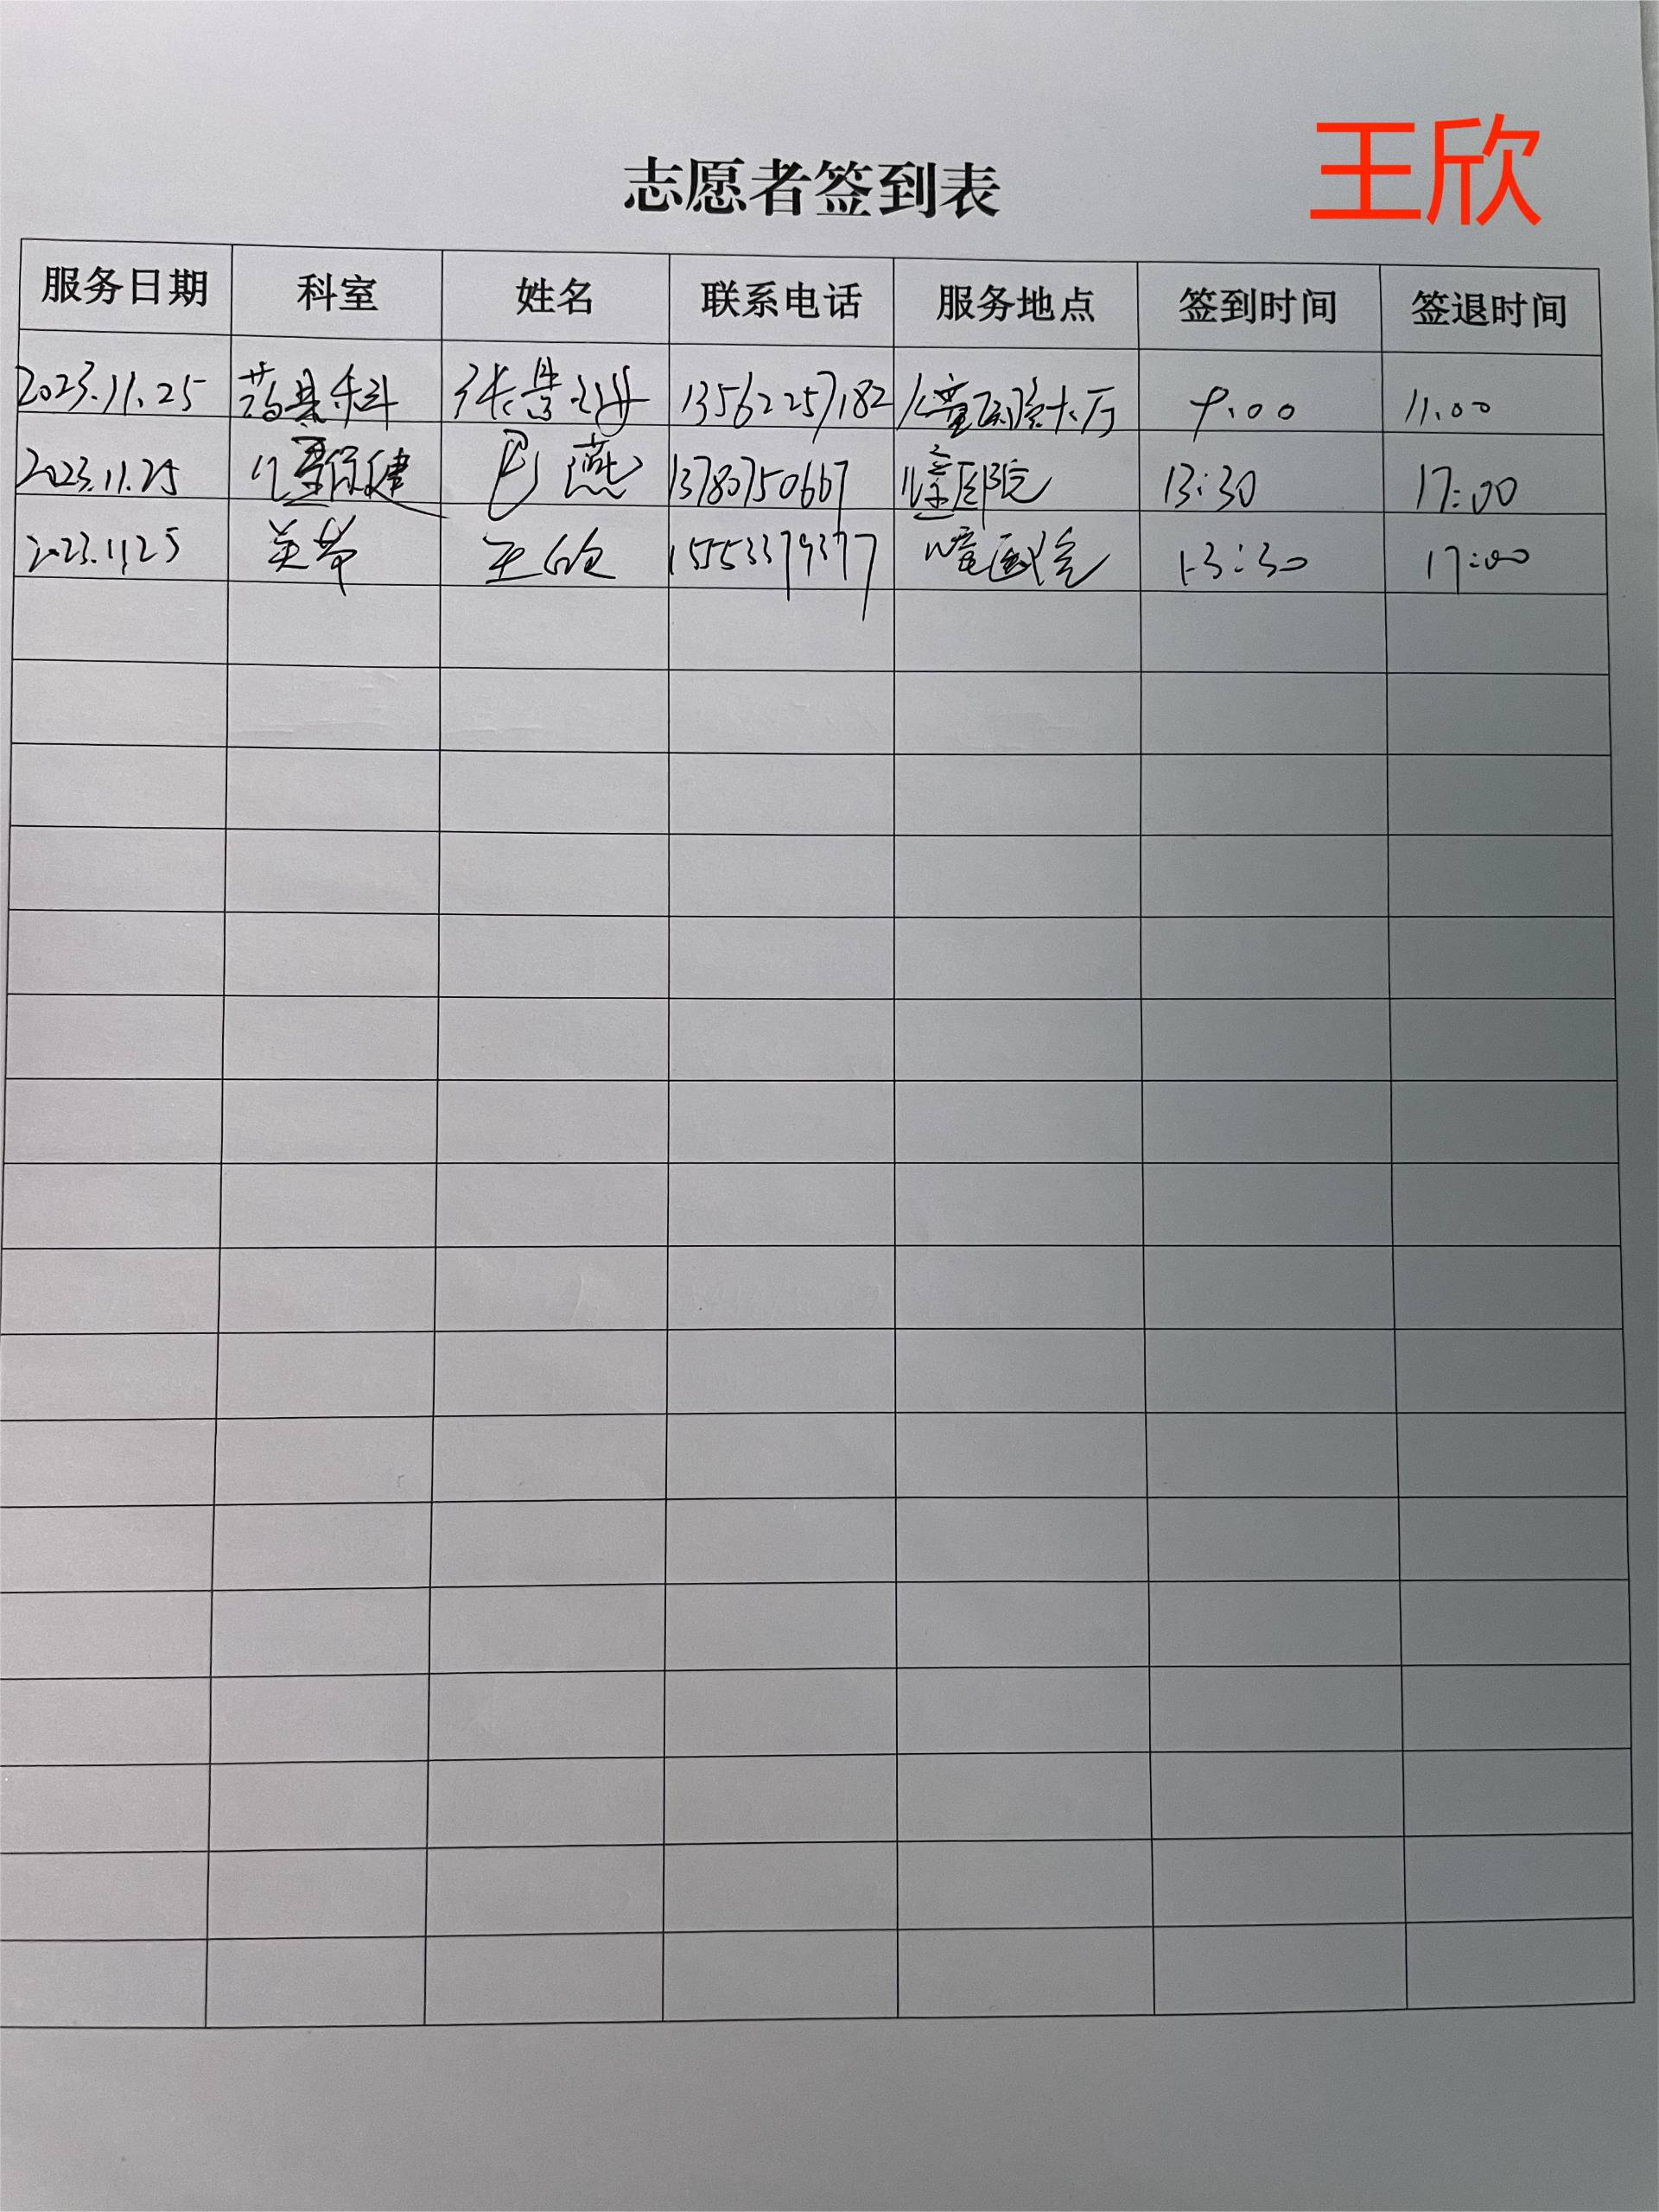 王欣
志愿者签到表
服务日期 科室 姓名 联系电话 服务地点 签到时间 签退时间
2023.11.25 药具科 张景 13562257182 儿童医院大厅 9:00 11:00
2023.11.25 儿童保健 巴燕 13780750667 儿童医院 13:30 17:00
2023.11.25 王欣 15553379377 儿童医院 13:30 17:00